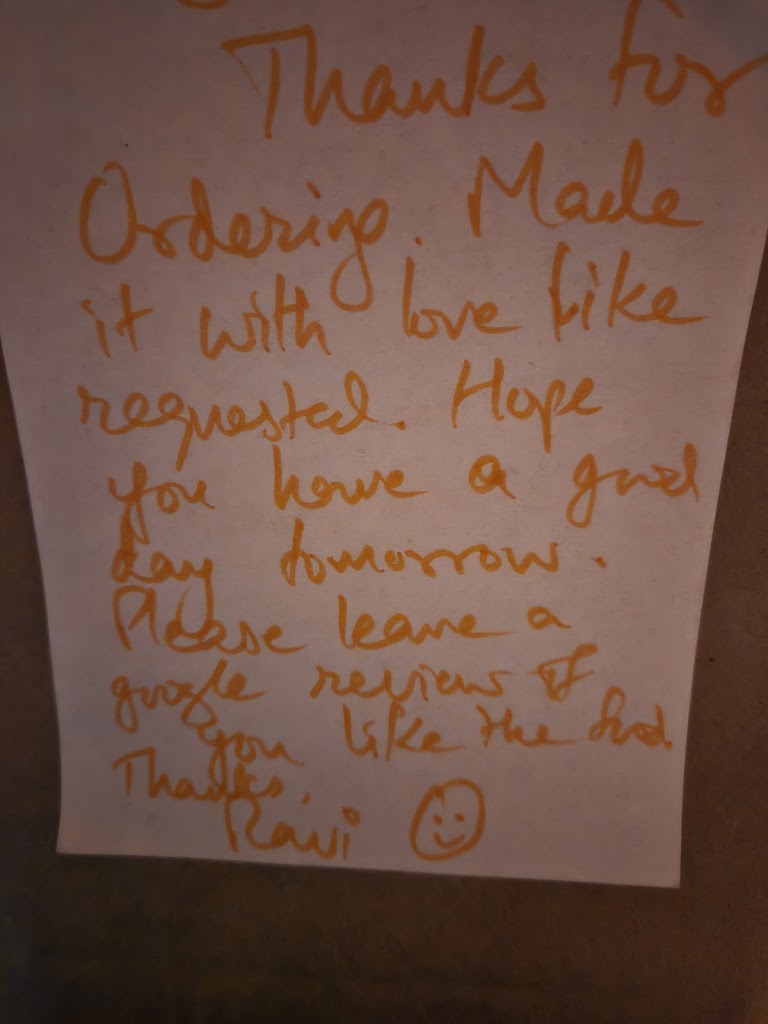 Thanks for
Ordering. Made
it with love like
requested. Hope
you have a good
day tomorrow.
Please leave a
google review if
you like the food.
Thanks,
Ravi